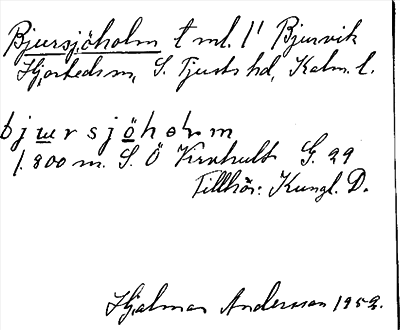 Bjursjöholm t ml. 1' Bjurvik
Hjorteds sn, S. Tjusts hd, Kalm. l.
bjursjöholm
1.800 m. S. Ö Kvahult G. 29
Tillhör: Kungl. D.
Hjalmar Andersson 1952.